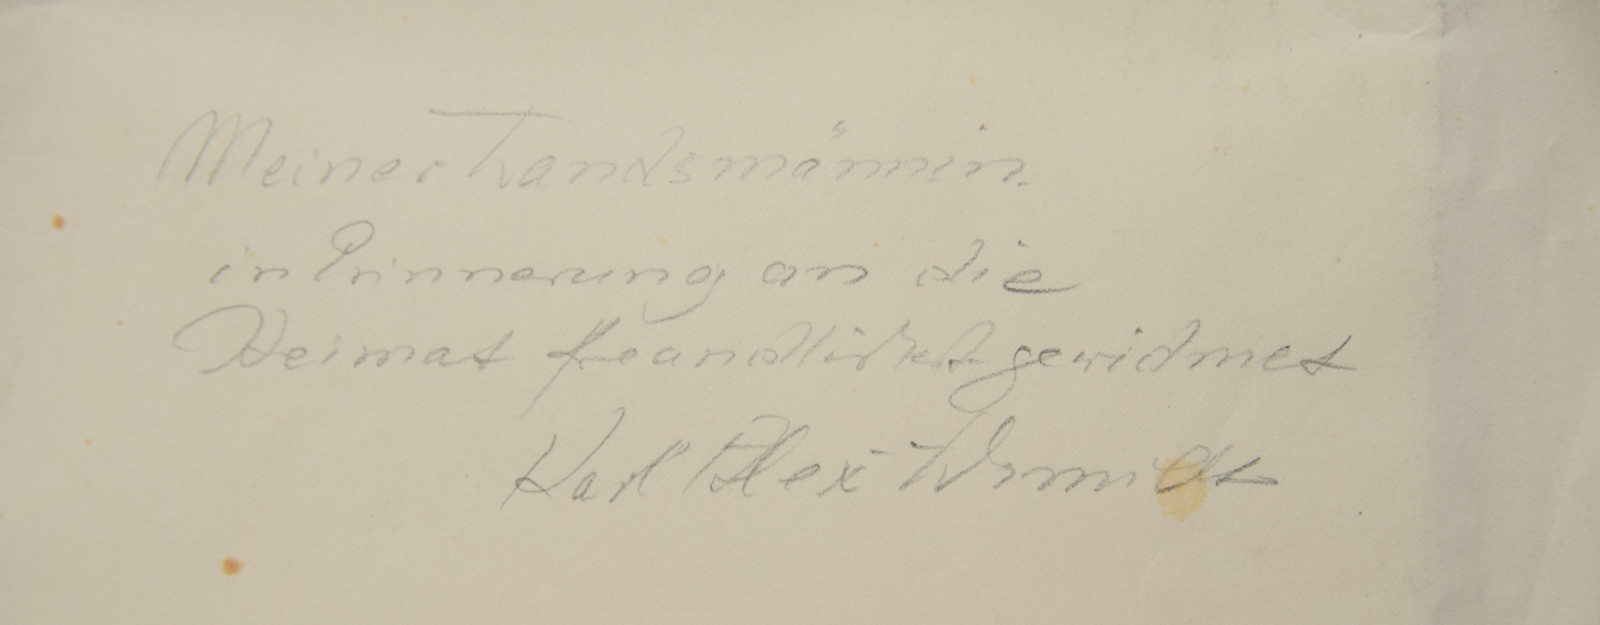 Meiner Landsmännin
in Erinnerung an die
Heimat freundlichst gewidmet
Karl Alex